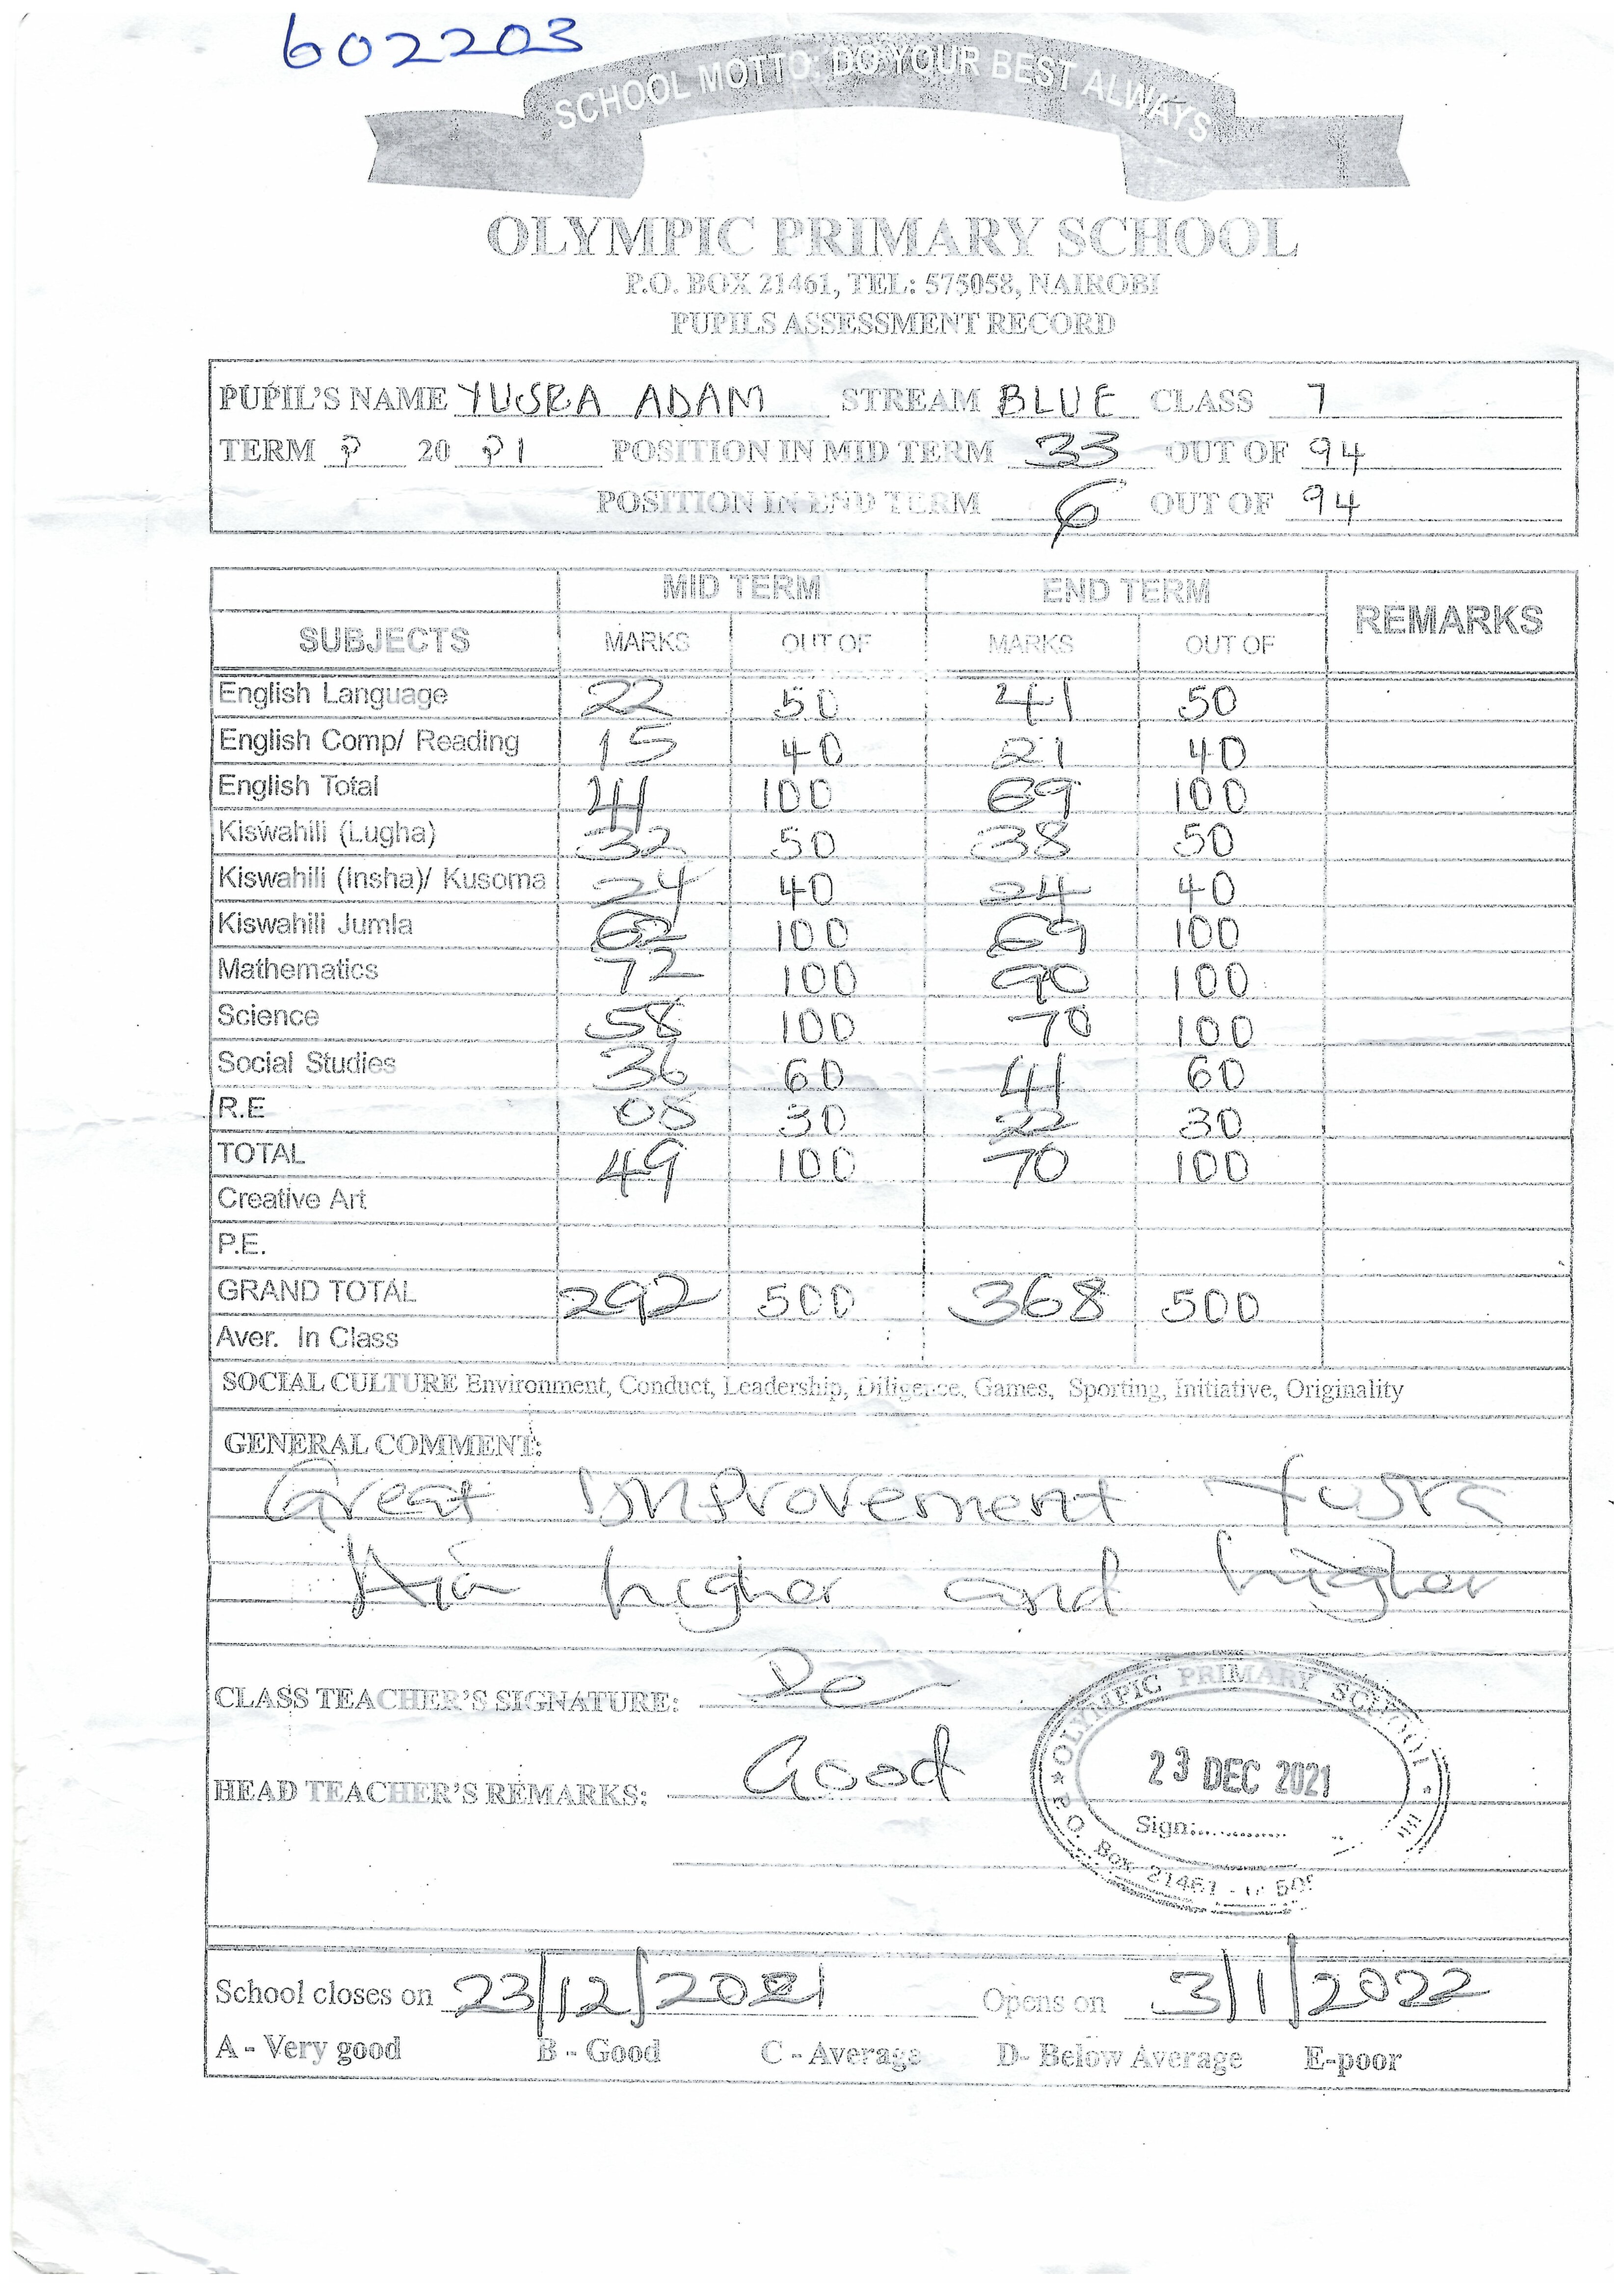 602203
SCHOOL MOTTO: DO YOUR BEST ALWAYS
OLYMPIC PRIMARY SCHOOL
P.O. BOX 21461, TEL: 575058, NAIROBI
PUPILS ASSESSMENT RECORD
PUPIL'S NAME YUSRA ADAM STREAM BLUE CLASS 7
TERM 2 20 21 POSITION IN MID TERM 33 OUT OF 94
POSITION IN END TERM 6 OUT OF 94
MID TERM END TERM REMARKS
SUBJECTS MARKS OUT OF MARKS OUT OF
English Language 22 50 41 50
English Comp/ Reading 15 40 21 40
English Total 41 100 69 100
Kiswahili (Lugha) 32 50 38 50
Kiswahili (Insha)/ Kusoma 24 40 24 40
Kiswahili Jumla 62 100 69 100
Mathematics 72 100 90 100
Science 58 100 70 100
Social Studies 36 60 41 60
R.E 08 30 22 30
TOTAL 49 100 70 100
Creative Art
P.E.
GRAND TOTAL 292 500 368 500
Aver. In Class
SOCIAL CULTURE Environment, Conduct, Leadership, Diligence, Games, Sporting, Initiative, Originality
GENERAL COMMENT:
Great Improvement Yusra
Aim higher and higher
CLASS TEACHER'S SIGNATURE:
HEAD TEACHER'S REMARKS: Good
OLYMPIC PRIMARY SCHOOL
23 DEC 2021
Sign:
P.O. Box 21461
School closes on 23/12/2021 Opens on 3/1/2022
A - Very good B - Good C - Average D- Below Average E-poor